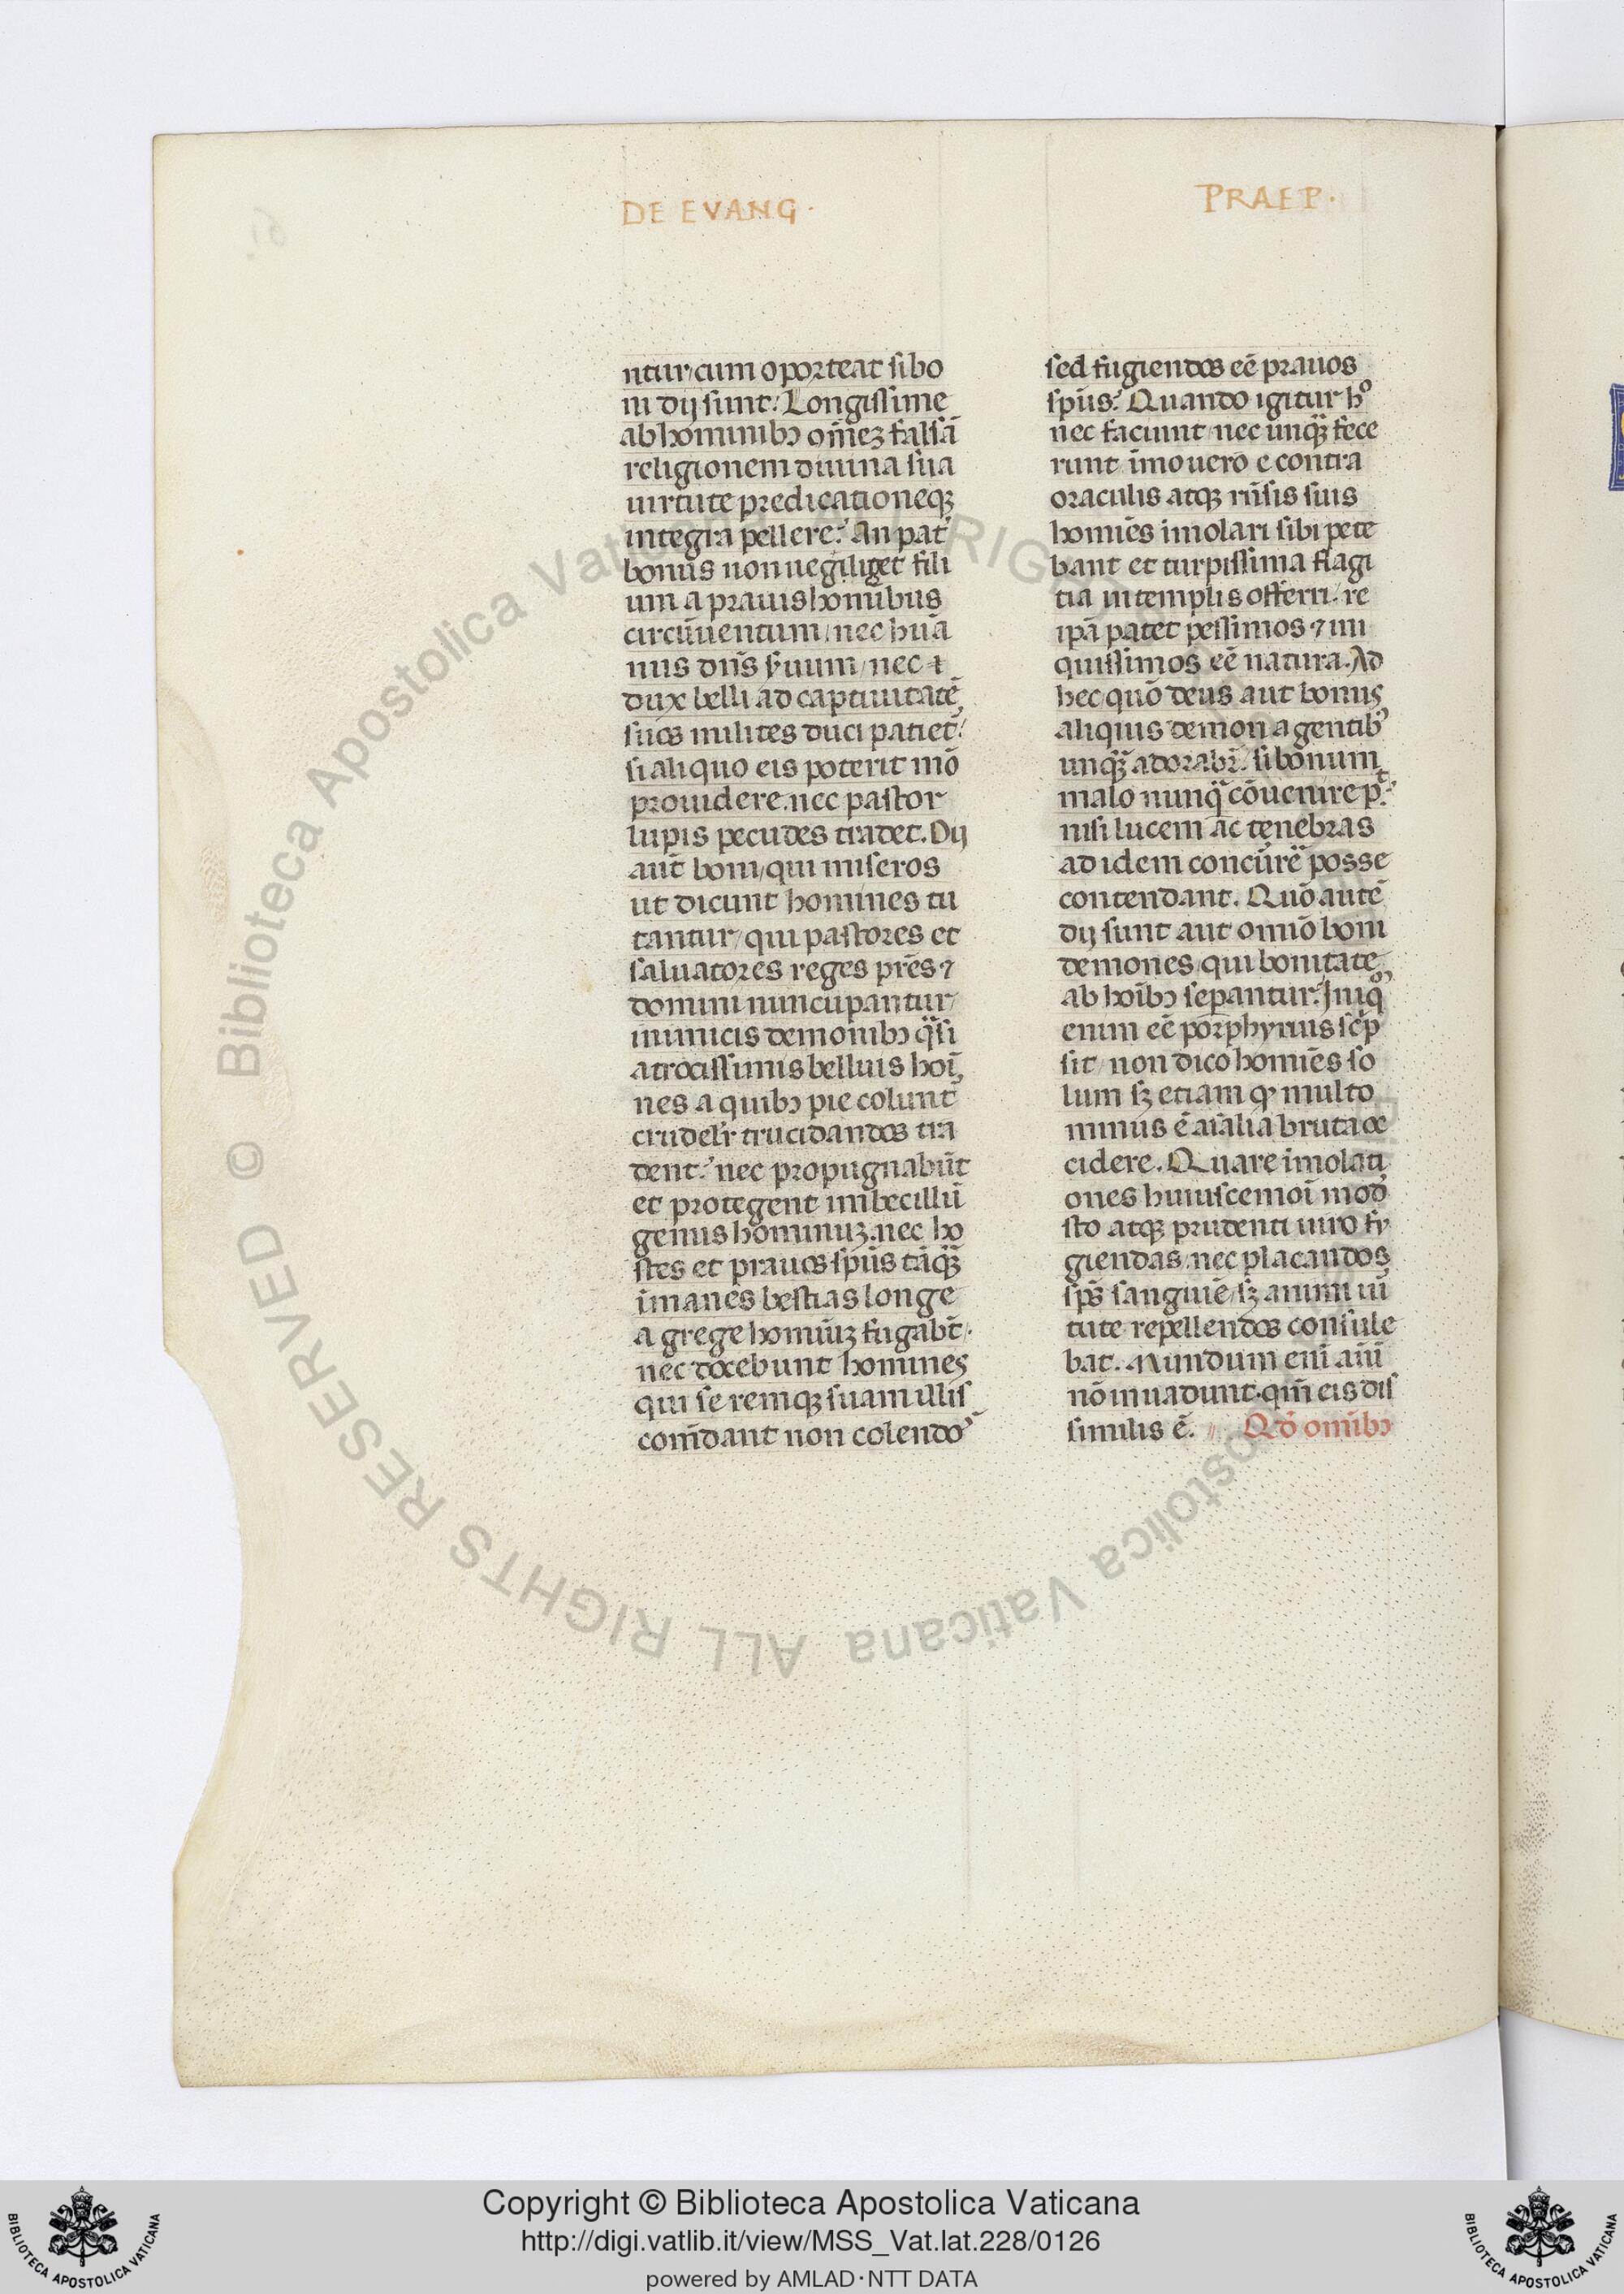 DE EVANG·
PRAEP·
ntur/cum oporteat si bo
ni dij sunt: Longissime
ab hominibꝫ om̄eꝫ falsā
religionem diuina sua
uirtute predicationeqꝫ
integra pellere: An pat᷑
bonus non negiliget fili
um a prauis homībus
circūuentum/nec hūa
nus dn̄s ẜuum/nec
dux belli ad captiuitatē
suos milites duci patiet᷑
si aliquo eis poterit mō
prouidere. nec pastor
lupis pecudes tradet. Dij
aūt boni/qui miseros
ut dicunt homines tu
tantur/qui pastores et
saluatores reges prēs ⁊
domini nuncupantur/
inimicis demonibꝫ qͣsi
atrocissimis belluis hoī
nes a quibꝫ pie colunt᷑
crudelr̄ trucidandos tra
dent: nec propugnabūt
et protegent imbecillū
genus hominuꝫ. nec ho
stes et prauos spūs tāqͣꝫ
imanes bestias longe
a grege hominuꝫ fugabt̄.
nec docebunt homines
qui se remqꝫ suam illis
com̄dant non colendos
sed fugiendos eē prauos
spūs: Quando igitur hº
nec faciunt nec unqͣꝫ fece
runt imo uero e contra
oraculis atqꝫ rn̄sis suis
homīes imolari sibi pete
bant et turpissima flagi
tia in templis offerri. re
ipā patet pessimos ⁊ ini
quissimos eē natura. Ad
hec/quō deus aut bonus
aliquis demon a gentibꝰ
unqͣꝫ adorabr̄. si bonum
malo nunqͣ cōuenire p̄t.
nisi lucem ac tenebras
ad idem concūrē posse
contendant. Quō autē
dij sunt aut omīo boni
demones/qui bonitate
ab hoībꝫ sepantur. Iniqͦꝫ
enim eē porphyrius scp̄
sit/non dico homīes so
lum sꝫ etiam qͦ multo
minus ē aīalia bruta oc
cidere. Quare imolati
ones huiuscemoī mod̄
sto atqꝫ prudenti uiro fu
giendas/nec placandos
spūs sanguīe/sꝫ animi uī
tute repellendos consule
bat. Mundum enī aīū
nō inuadunt. qm̄ eis dis
similis ē. Qd̄ omībꝫ
Copyright © Biblioteca Apostolica Vaticana
http://digi.vatlib.it/view/MSS_Vat.lat.228/0126
powered by AMLAD·NTT DATA
BIBLIOTECA APOSTOLICA VATICANA
BIBLIOTECA APOSTOLICA VATICANA